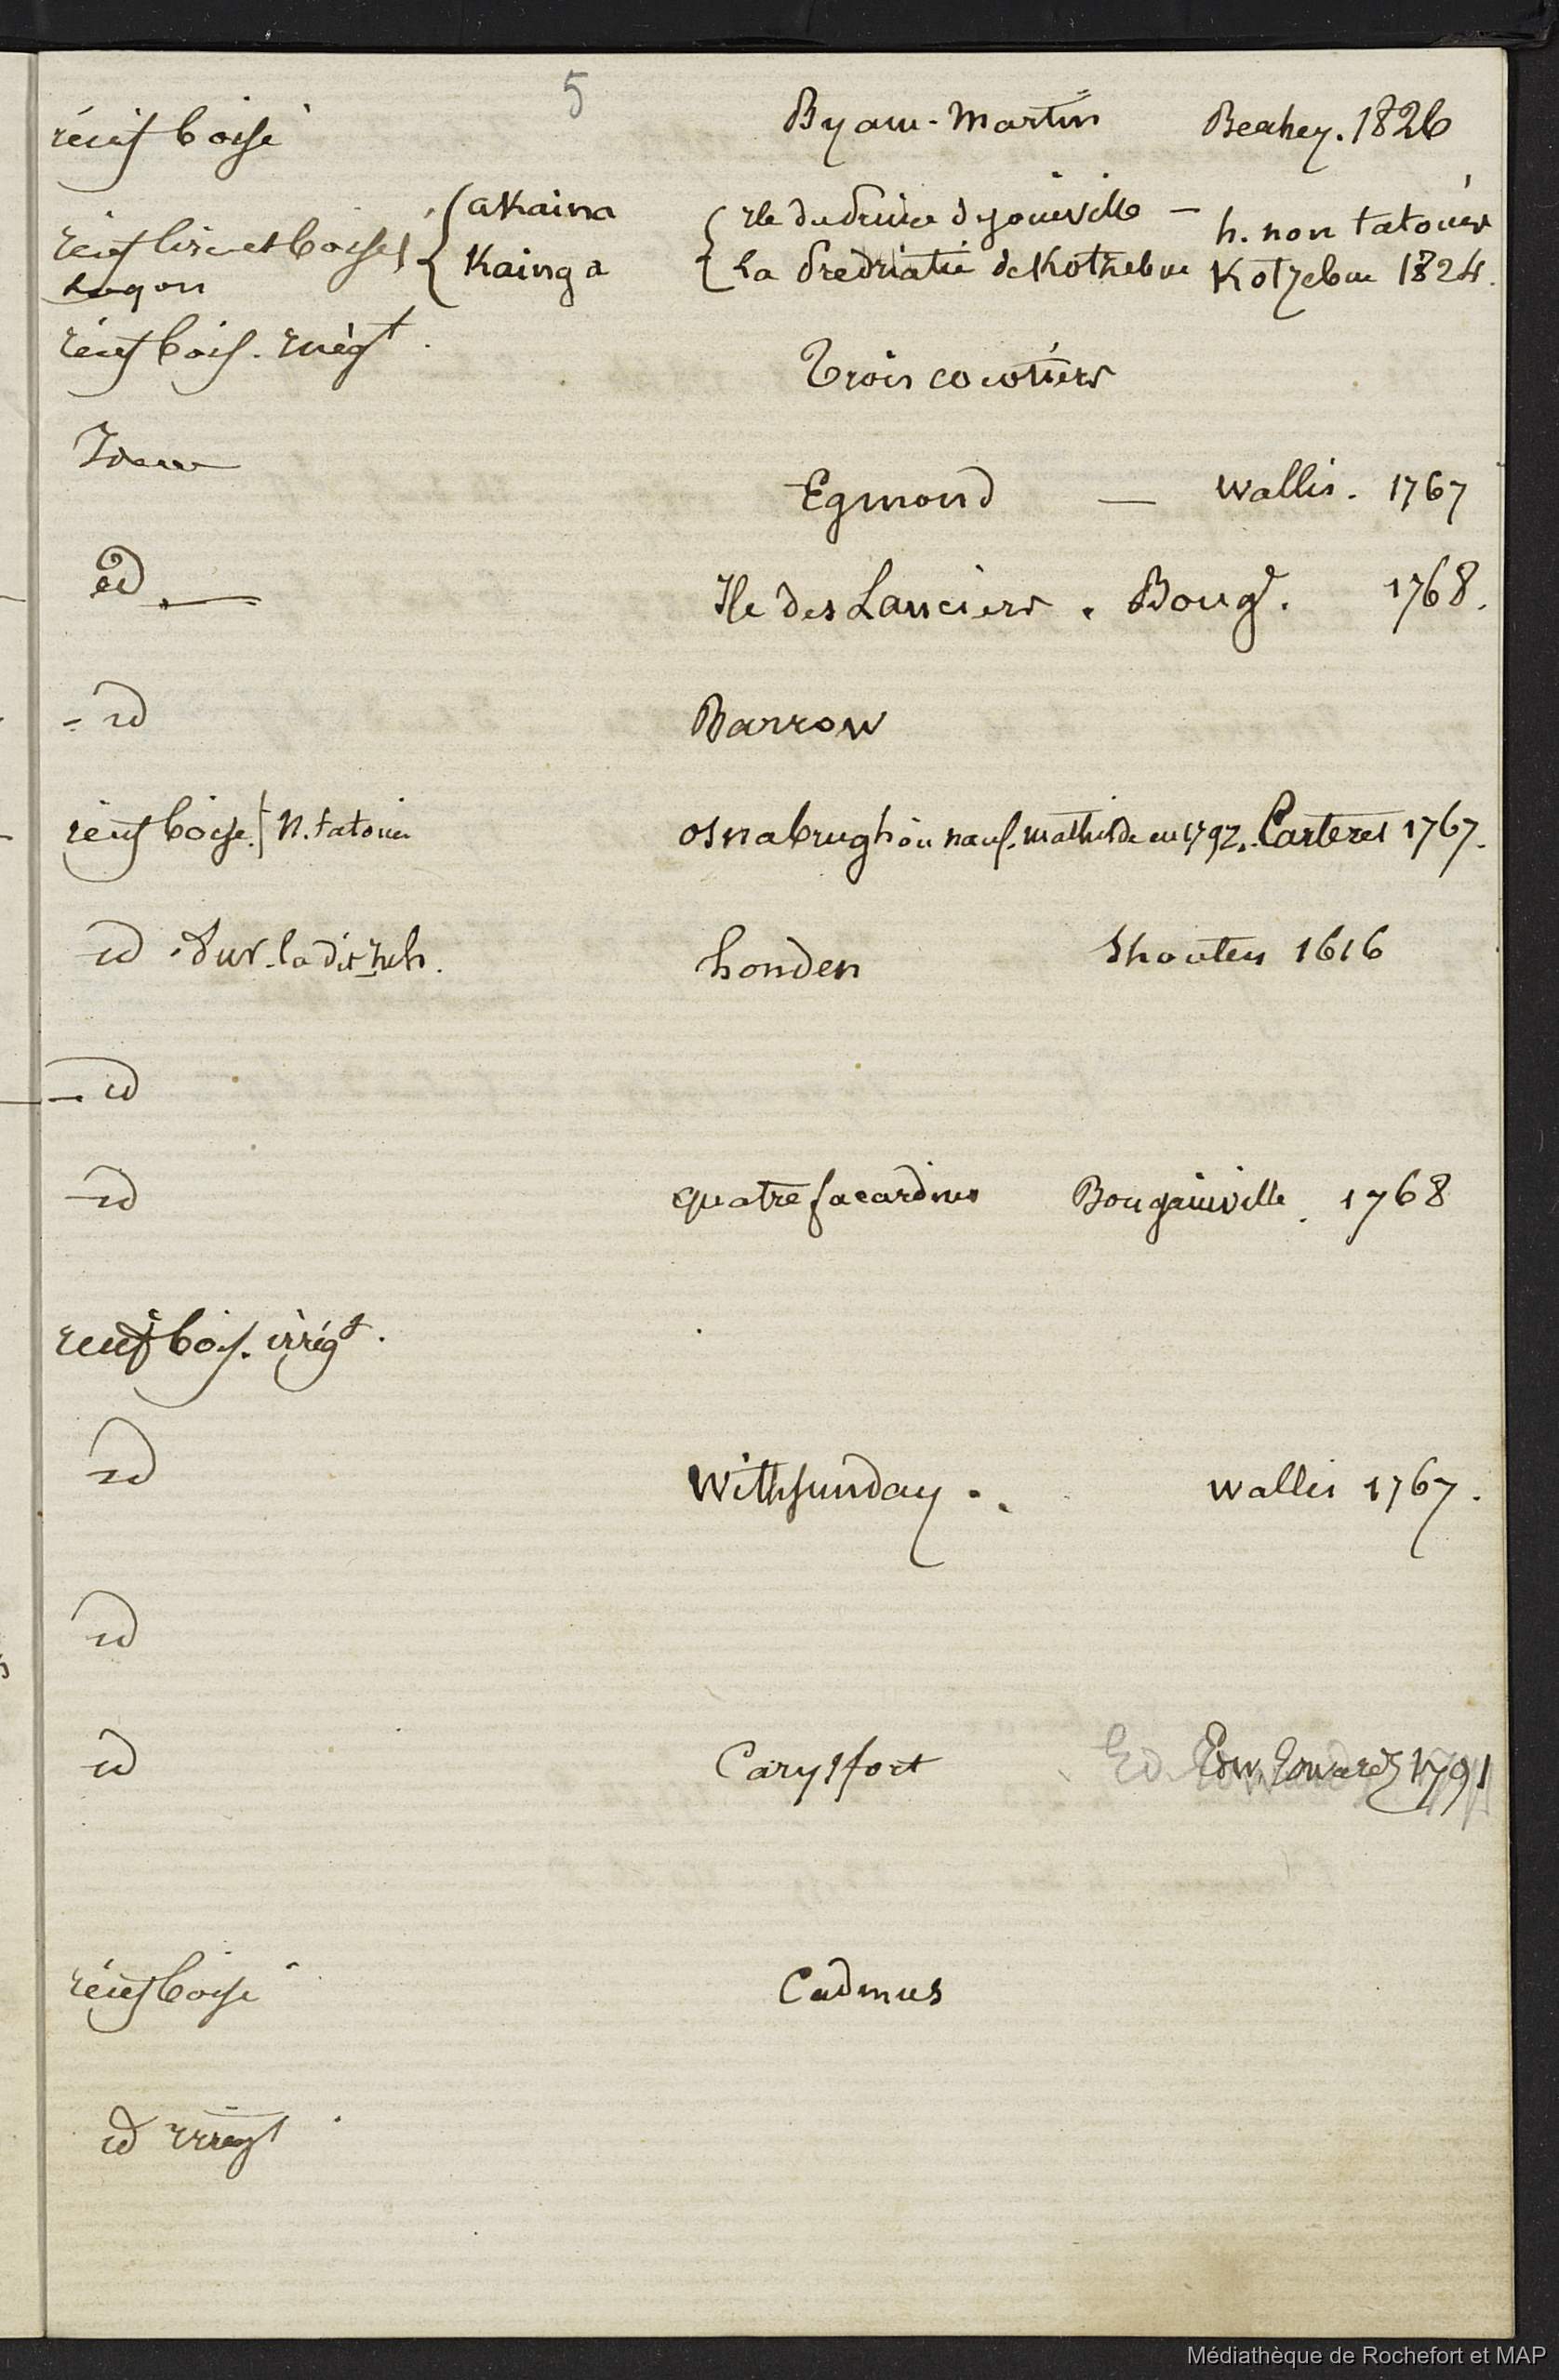 5
récif boisé Byam-Martin Beahey. 1826
akaina Ile du Prince de Joinville — h. non tatoués
récif bois et boisés Kainga La Predriatié de Kothebue Kotzebue 1824.
Lagon
récif bois. irrégt.
Trois cocotiers
Idem
Egmond — Wallis. 1767
id — Ile des Lanciers. Boug. 1768.
- id Barrow
récif boisé. N. tatoués osnabrugh où nauf. mathilde en 1792. Carteret 1767.
id honden Shouten 1616
— id
id quatre facardines Bougainville. 1768
récif bois. irrégt.
id Withsunday. Wallis 1767.
id
id Carysfort Edw. Edwards 1791
récif boisé Cadmus
id irrégt
Médiathèque de Rochefort et MAP